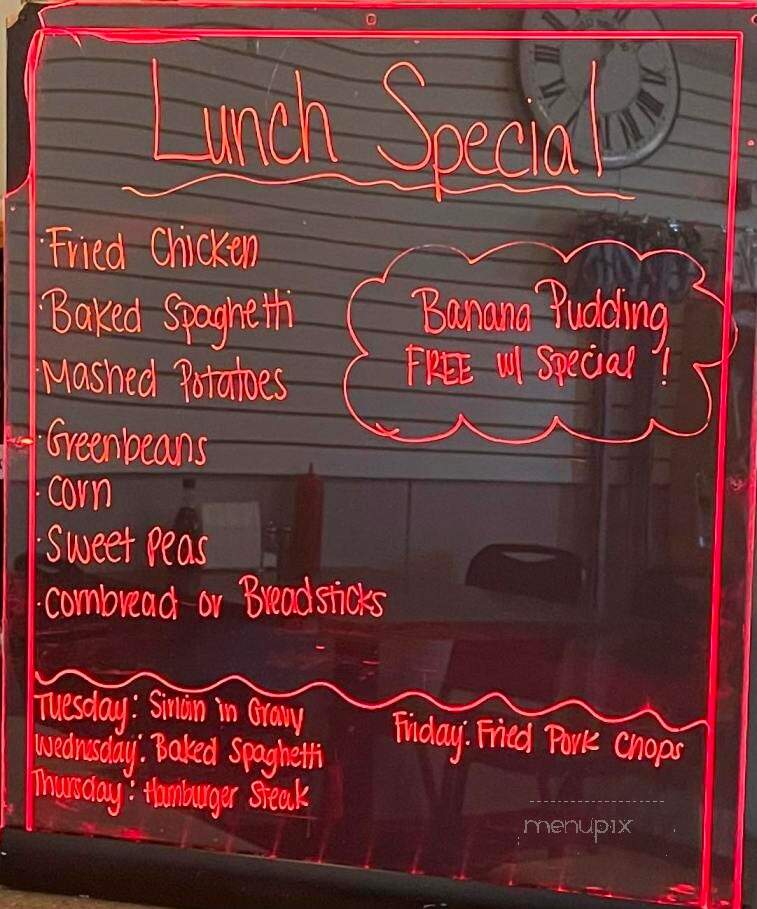 Lunch Special
·Fried Chicken
·Baked Spaghetti
·Mashed Potatoes
·Greenbeans
·Corn
·Sweet Peas
·Cornbread or Breadsticks
Banana Pudding
FREE w/ Special !
Tuesday: Sirloin in Gravy
Wednesday: Baked Spaghetti
Thursday: Hamburger Steak
Friday: Fried Pork Chops
menupix